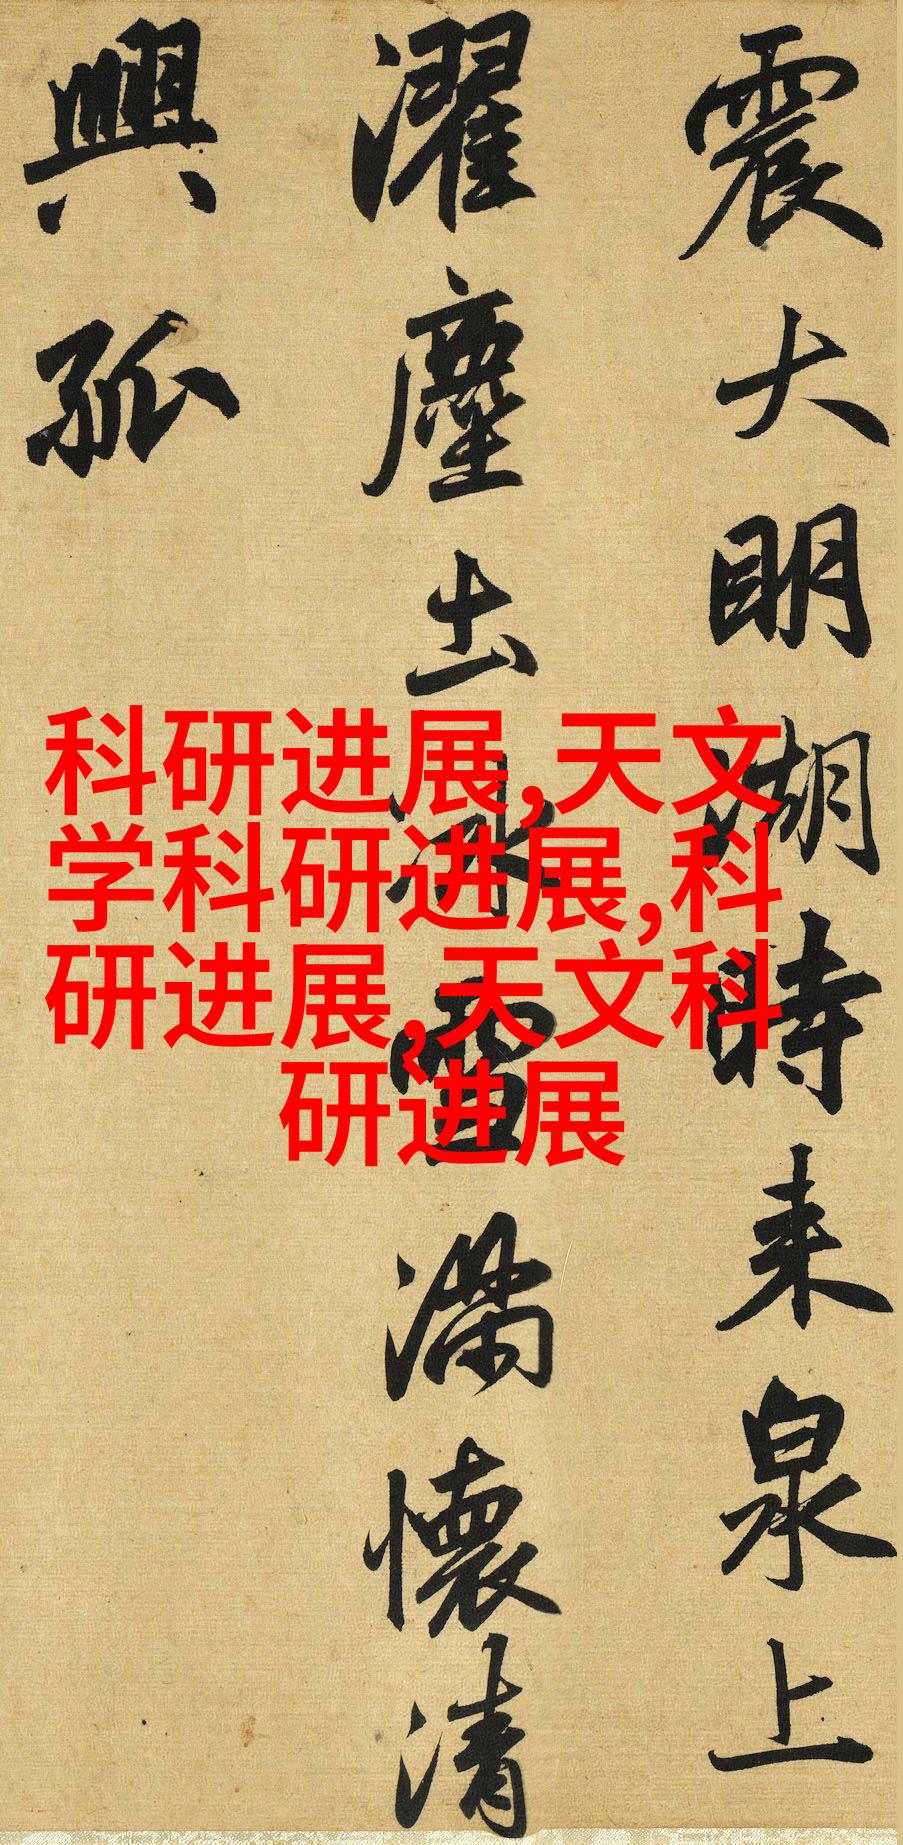 震大明湖時来泉上
濯塵出氷雪滿懷清
興孤
科研进展,天文
学科研进展,科
研进展,天文科
研进展